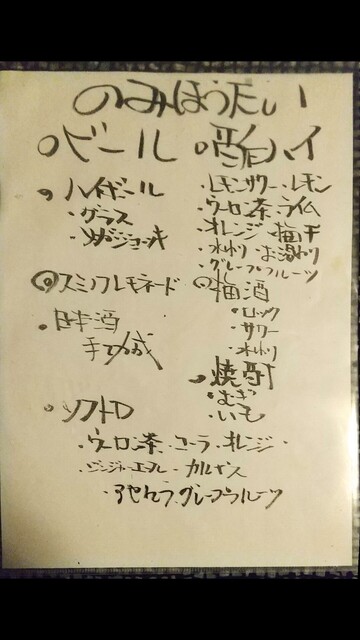 のみほうだい
ビール
酎ハイ
ハイボール
・グラス
・メガジョッキ
・レモンサワー・レモン
ウーロン茶・ライム
オレンジ・梅干
・水わり・お湯わり
・グレープフルーツ
スミノフレモネード
・梅酒
・ロック
・サワー
・水わり
・日本酒
・焼酎
・むぎ
・いも
・ソフトD
・ウーロン茶・コーラ・オレンジ・
・ジンジャーエール・カルピス
・アセロラ・グレープフルーツ